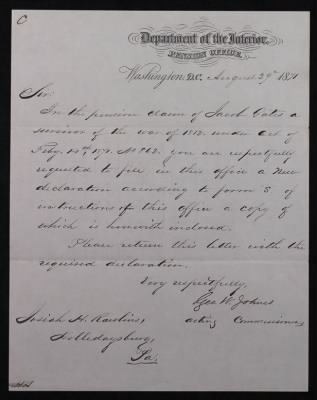 C
Department of the Interior,
PENSION OFFICE,
Washington, D.C., August 29th 1871
Sir:
In the pension claim of Jacob Gates
a survivor of the war of 1812, under Act of
Feby. 14th 1871, you are respectfully
requested to file in this office a new
declaration according to form
instructions of this office a copy of
which is herewith inclosed.
Please return this letter with the
required declaration.
Very respectfully,
Geo W. Johnes
acting Commissioner
Josiah H. Rawlins,
Hollidaysburg,
Pa.